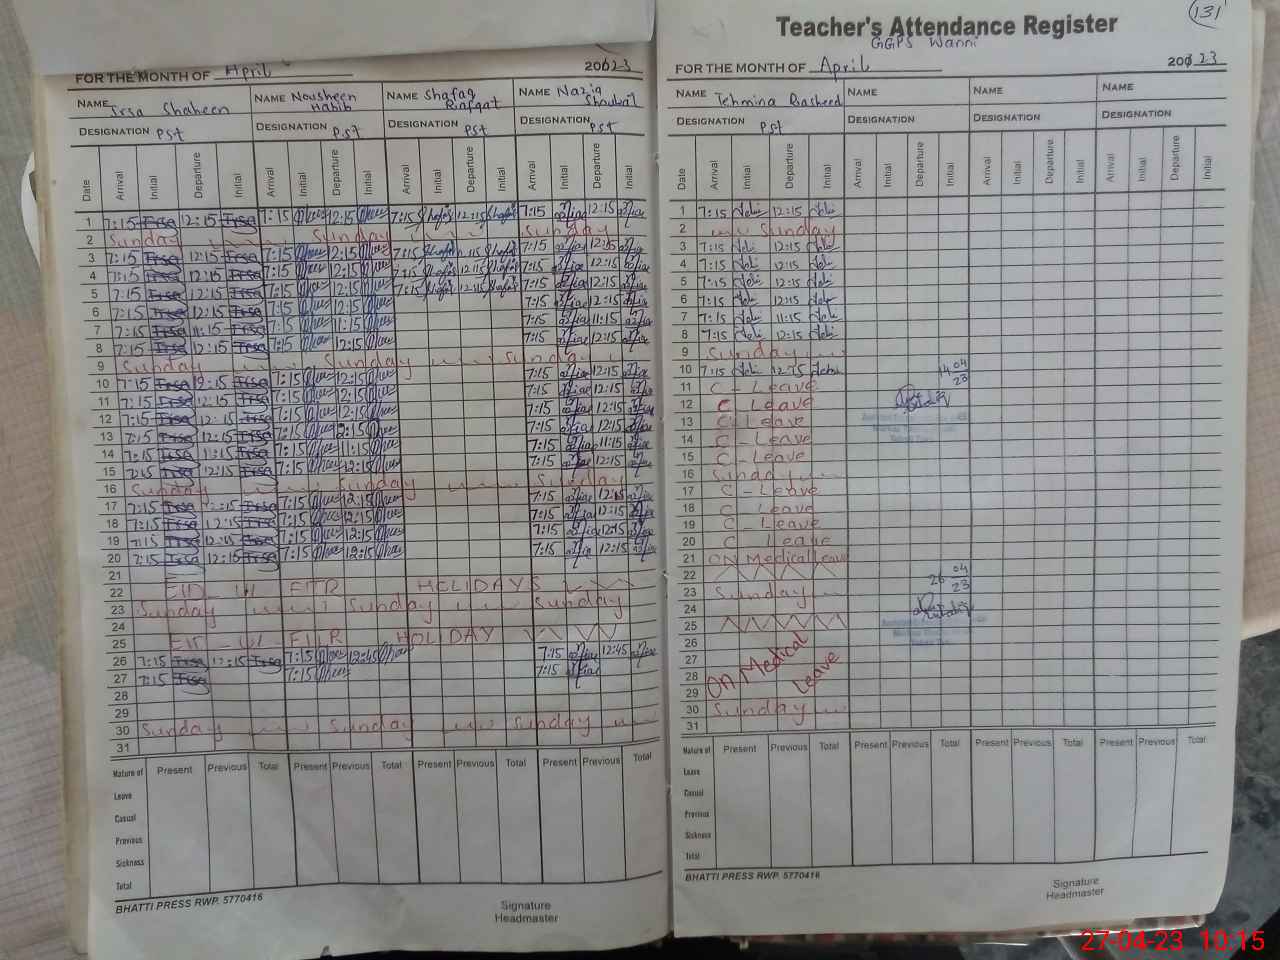 FOR THE MONTH OF April 20023
NAME Irsa Shaheen NAME Nousheen Habib NAME Shafaq Riafqat NAME Nazia Shoukat
DESIGNATION PST DESIGNATION PST DESIGNATION PST DESIGNATION PST
Date Arrival Initial Departure Initial Arrival Initial Departure Initial Arrival Initial Departure Initial Arrival Initial Departure Initial
1 7:15 Irsa 12:15 Irsa 7:15 12:15 7:15 Shafaq 12:15 Shafaq 7:15 12:15
2 Sunday Sunday Sunday
3 7:15 Irsa 12:15 Irsa 7:15 12:15 7:15 Shafaq 12:15 Shafaq 7:15 12:15
4 7:15 Irsa 12:15 Irsa 7:15 12:15 7:15 Shafaq 12:15 Shafaq 7:15 12:15
5 7:15 Irsa 12:15 Irsa 7:15 12:15 7:15 Shafaq 12:15 Shafaq 7:15 12:15
6 7:15 Irsa 12:15 Irsa 7:15 12:15 7:15 12:15
7 7:15 Irsa 11:15 Irsa 7:15 11:15 7:15 11:15
8 7:15 Irsa 12:15 Irsa 7:15 12:15 7:15 12:15
9 Sunday Sunday Sunday
10 7:15 Irsa 12:15 Irsa 7:15 12:15 7:15 12:15
11 7:15 Irsa 12:15 Irsa 7:15 12:15 7:15 12:15
12 7:15 Irsa 12:15 Irsa 7:15 12:15 7:15 12:15
13 7:15 Irsa 12:15 Irsa 7:15 12:15 7:15 12:15
14 7:15 Irsa 11:15 Irsa 7:15 11:15 7:15 11:15
15 7:15 Irsa 12:15 Irsa 7:15 12:15 7:15 12:15
16 Sunday Sunday Sunday
17 7:15 Irsa 12:15 Irsa 7:15 12:15 7:15 12:15
18 7:15 Irsa 12:15 Irsa 7:15 12:15 7:15 12:15
19 7:15 Irsa 12:15 Irsa 7:15 12:15 7:15 12:15
20 7:15 Irsa 12:15 Irsa 7:15 12:15 7:15 12:15
21
22 EID - UL - FITR HOLIDAYS
23 Sunday Sunday Sunday
24
25 EID - UL - FITR HOLIDAY
26 7:15 Irsa 12:15 Irsa 7:15 12:45 7:15 12:45
27 7:15 Irsa 7:15 7:15
28
29
30 Sunday Sunday Sunday
31
Nature of Present Previous Total Present Previous Total Present Previous Total Present Previous Total
Leave
Casual
Previous
Sickness
Total
BHATTI PRESS RWP. 5770416
Signature
Headmaster
131
Teacher's Attendance Register
GGPS Wanni
FOR THE MONTH OF April 200 23
NAME Tehmina Rasheed NAME NAME NAME
DESIGNATION PST DESIGNATION DESIGNATION DESIGNATION
Date Arrival Initial Departure Initial Arrival Initial Departure Initial Arrival Initial Departure Initial Arrival Initial Departure Initial
1 7:15 12:15
2 Sunday
3 7:15 12:15
4 7:15 12:15
5 7:15 12:15
6 7:15 12:15
7 7:15 11:15
8 7:15 12:15
9 Sunday
10 7:15 12:15 14 04
11 C - Leave 23
12 C Leave
13 C - Leave
14 C - Leave
15 C - Leave
16 Sunday
17 C - Leave
18 C Leave
19 C - Leave
20 C Leave
21 ON Medical Leave
22 26 04
23 Sunday 23
24
25
26
27 ON Medical
28 Leave
29
30 Sunday
31
Nature of Present Previous Total Present Previous Total Present Previous Total Present Previous Total
Leave
Casual
Previous
Sickness
Total
BHATTI PRESS RWP. 5770416
Signature
Headmaster
27-04-23 10:15